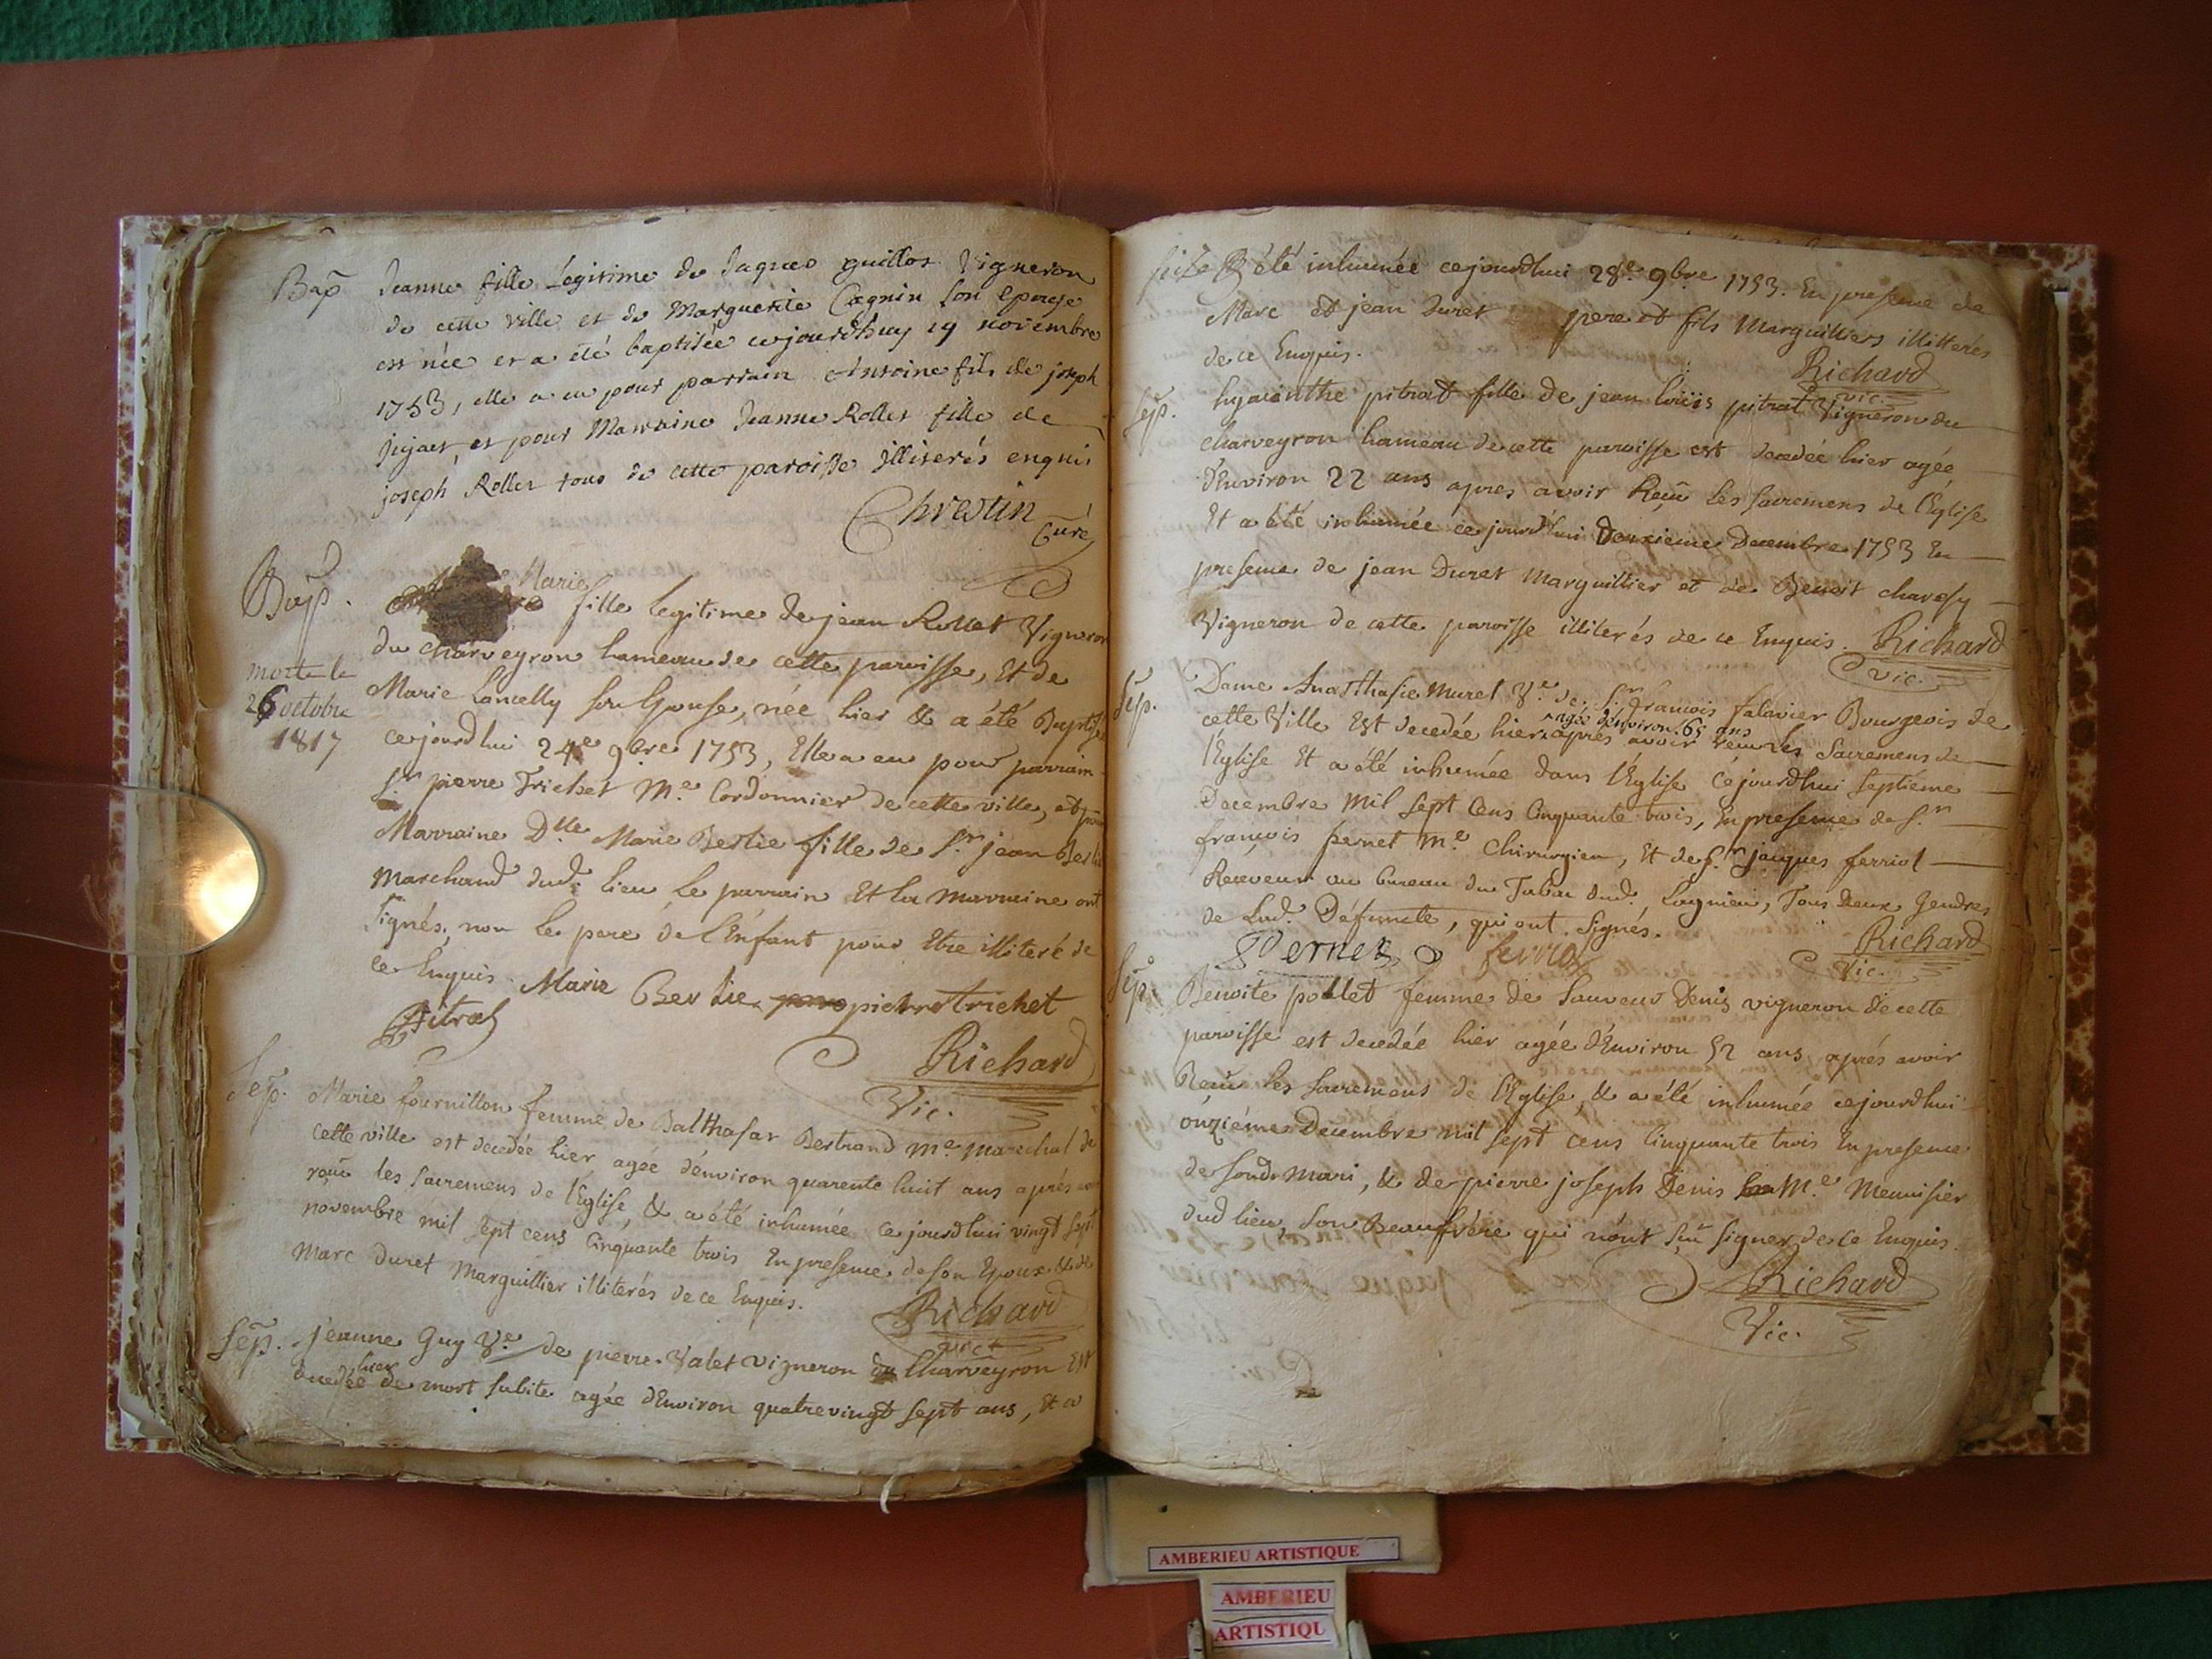 Bap Jeanne fille Légitime de Jaques guillot Vigneron
de cette ville et de Marguerite Cagnin son epouse
est née et a été baptisée cejourdhuy 19 novembre
1753, elle a eu pour parrain Antoine fils de joseph
et pour Marraine Jeanne Rollet fille de
joseph Rollet tous de cette paroisse illiterés enquis
Chrestin
Curé
Bap. Marie
fille legitime de jean Rollet Vigneron
du charveyron hameau de cette paroisse, Et de
morte le
26 octobre
1817
Marie Lancelly son Epouse, née hier & a été Baptisée
cejourdhui 24e 9bre 1753, Elle a eu pour parrain
Sr pierre Trichet Me Cordonnier de cette ville, et pour
Marraine Dlle Marie Berlie fille de Sr jean Berlie
Marchand dud. lieu Le parrain Et la marraine ont
signés, non le pere de l'Enfant pour Etre illiteré de
ce Enquis. Marie Berlie pierre trichet
Pitrat
Richard
Vic.
Sep. Marie fournillon femme de Balthasar Bertrand Me marechal de
cette ville est decedée hier agée d'environ quarente huit ans aprés avoir
reçu les sacremens de l'Eglise, & a été inhumée ce jourdhui vingt sept
novembre mil sept cens Cinquante trois En presence de son Epoux & de
Marc duret Marguillier illiterés de ce Enquis.
Richard
vic.
Sep. jeanne Guy Ve de pierre Valet vigneron du Charveyron Est
hier
decedée de mort subite agée d'Environ quatrevingt sept ans, Et a
été inhumée cejourdhui 28e 9bre 1753. En presence de
Marc Et jean Duret pere et fils Marguilliers illitterés
de ce Enquis.
Richard
vic.
Sep. hyacinthe pitrat fille de jean loüis pitrat Vigneron du
charveyron hameau de cette paroisse est decedée hier agée
d'Environ 22 ans apres avoir Reçu les sacremens de l'Eglise
Et a été inhumée ce jourd'hui Deuxieme Decembre 1753 En
presence de jean Duret Marguillier et de Benoit charesy
Vigneron de cette paroisse illiterés de ce Enquis. Richard
vic.
Sep. Dame Anasthasie Muret Ve de Sr françois falavier Bourgeois de
agée d'environ 65 ans
cette Ville Est decedée hier aprés avoir reçu les Sacremens de
l'Eglise Et a été inhumée dans l'Eglise Cejourdhui septiéme
Decembre mil sept Cens Cinquante trois, En presence de Sr
françois pernet Me Chirurgien, Et de Sr jacques ferriol
Receveur au bureau du Tabac dud. Lagnieu, Tous deux Gendres
de Lad. Défuncte, qui ont signés.
Pernet ferriol Richard
Vic.
Sep. Benoite pollet femme de Sauveur Denis vigneron de cette
paroisse est decedée hier agée d'Environ 52 ans, aprés avoir
Reçu les sacremens de l'Eglise, & a été inhumée cejourdhui
onziéme Decembre mil sept cens Cinquante trois En presence
de sond. mari, & de pierre joseph Denis Me Menuisier
dud lieu, son Beaufrére qui n'ont sçu signer de ce Enquis.
Richard
Vic.
AMBERIEU ARTISTIQUE
AMBERIEU
ARTISTIQU